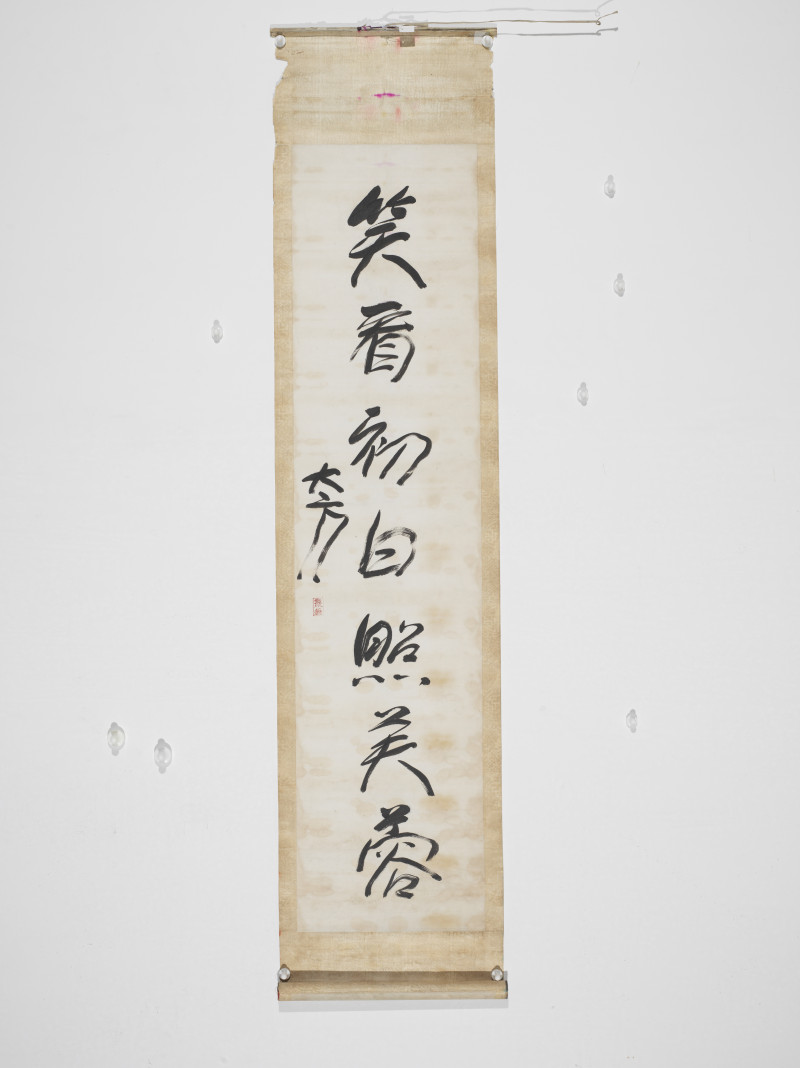 笑看初日照芙蓉
大方